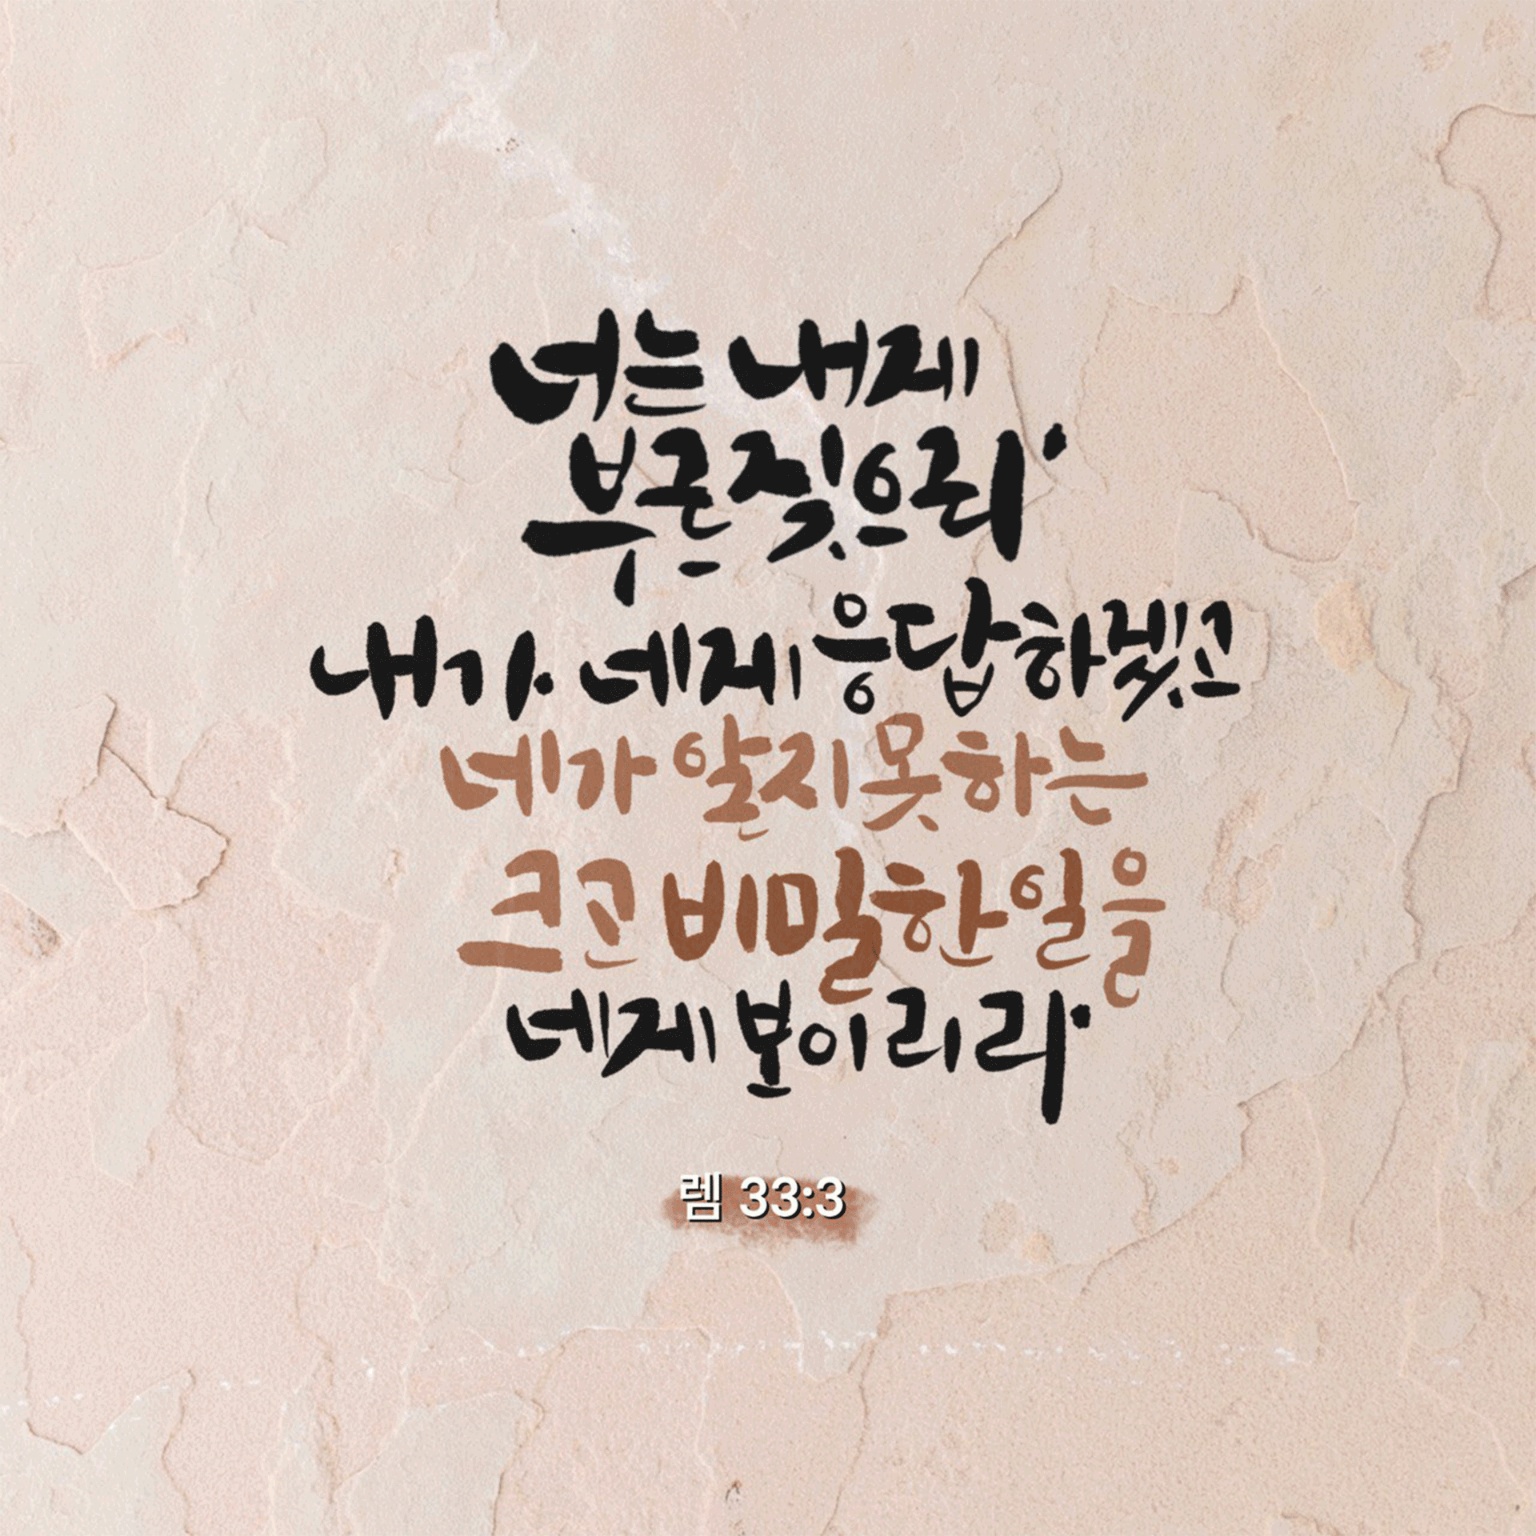 너는 내게
부르짖으라
내가 네게 응답하겠고
네가 알지 못하는
크고 비밀한 일을
네게 보이리라
렘 33:3